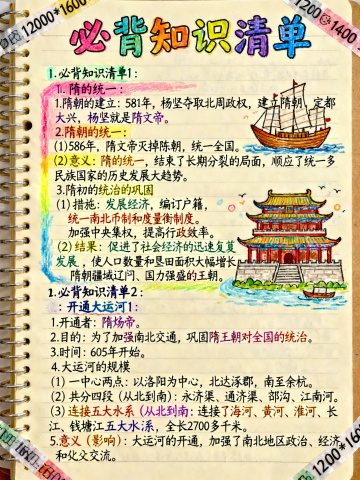 12000*1600
1200*1400
必背知识清单
1.必背知识清单1:
1.隋的统一:
1.隋朝的建立:581年,杨坚夺取北周政权,建立隋朝,定都
大兴,杨坚就是隋文帝。
2.隋朝的统一:
(1)586年,隋文帝灭掉陈朝,统一全国。
(2)意义:隋的统一,结束了长期分裂的局面,顺应了统一多
民族国家的历史发展大趋势。
3.隋初的统治的巩固
(1)措施:发展经济,编订户籍,
统一南北币制和度量衡制度。
加强中央集权,提高行政效率。
(2)结果:促进了社会经济的迅速复苏
发展,使人口数量和垦田面积大幅增长
隋朝疆域辽阔、国力强盛的王朝。
1.必背知识清单2:
:开通大运河1:
1.开通者:隋炀帝。
2.目的:为了加强南北交通,巩固隋王朝对全国的统治。
3.时间:605年开始。
4.大运河的规模
(1)一中心两点:以洛阳为中心,北达涿郡,南至余杭。
(2)共分四段(从北到南):永济渠、通济渠、邗沟、江南河。
(3)连接五大水系(从北到南:连接了海河、黄河、淮河、长
江、钱塘江五大水系,全长2700多千米。
5.意义(影响):大运河的开通,加强了南北地区政治、经济
和文交流。
1200*1600